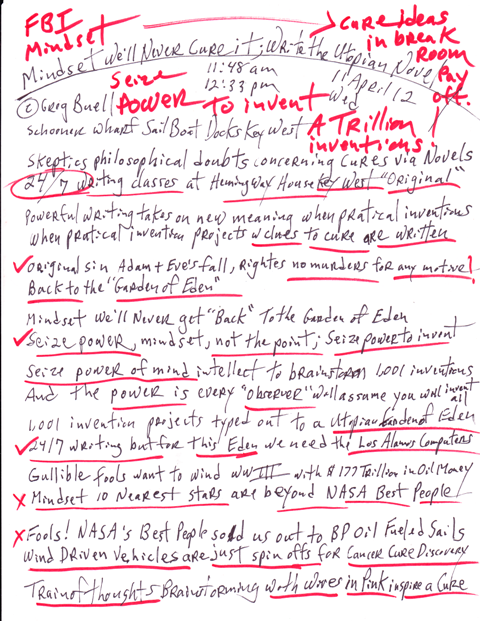 FBI
Mindset
> Cure ideas
in break
Room
Pay
off.
Mindset We'll Never Cure it; Write the Utopian Novel
Seize
POWER TO invent
11:48 am
12:33 pm
11 April 12
Wed
© Greg Buell
Schooner Wharf Sail Boat Docks Key West
A TRillion
inventions!
Skeptics philosophical doubts concerning Cures via Novels
24/7 writing classes at Hemingway House Key West "Original"
Powerful writing takes on new meaning when pratical inventions
when pratical invention projects w clues to cure are written
✓ Original sin Adam + Eve's fall, rightes no murders for any motive!
Back to the "Garden of Eden"
Mindset We'll Never get "Back" To the Garden of Eden
✓ Seize power, mindset, not the point; Seize power to invent
Seize power of mind intellect to brainstorm 1,001 inventions
And the power is every "observer" will assume you will invent all
1,001 invention projects typed out to a Utopian Garden of Eden
✓ 24/7 writing but for this Eden we need the Los Alamos Computers
Gullible Fools want to wind WW III with $177 Trillion in Oil Money
X Mindset 10 Nearest stars are beyond NASA Best People!
X Fools! NASA's Best People sold us out to BP Oil Fueled Sails
Wind Driven Vehicles are just spin offs for Cancer Cure Discovery
Train of thoughts Brainstorming with Wives in Pink inspire a Cure